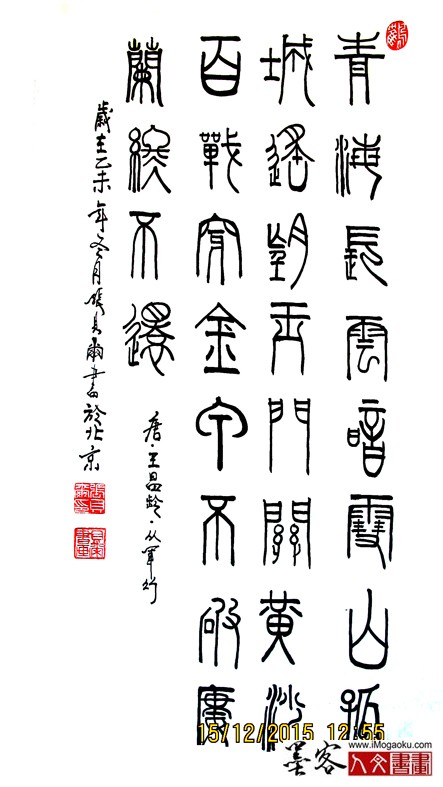 青海長雲暗雪山孤
城遙望玉門關黃沙
百戰穿金甲不破樓
蘭終不還
唐·王昌齡·从軍行
歲在乙未年冬月張貝爾書於北京
15/12/2015 12:55
墨客
www.iMogaoku.com
人文書畫